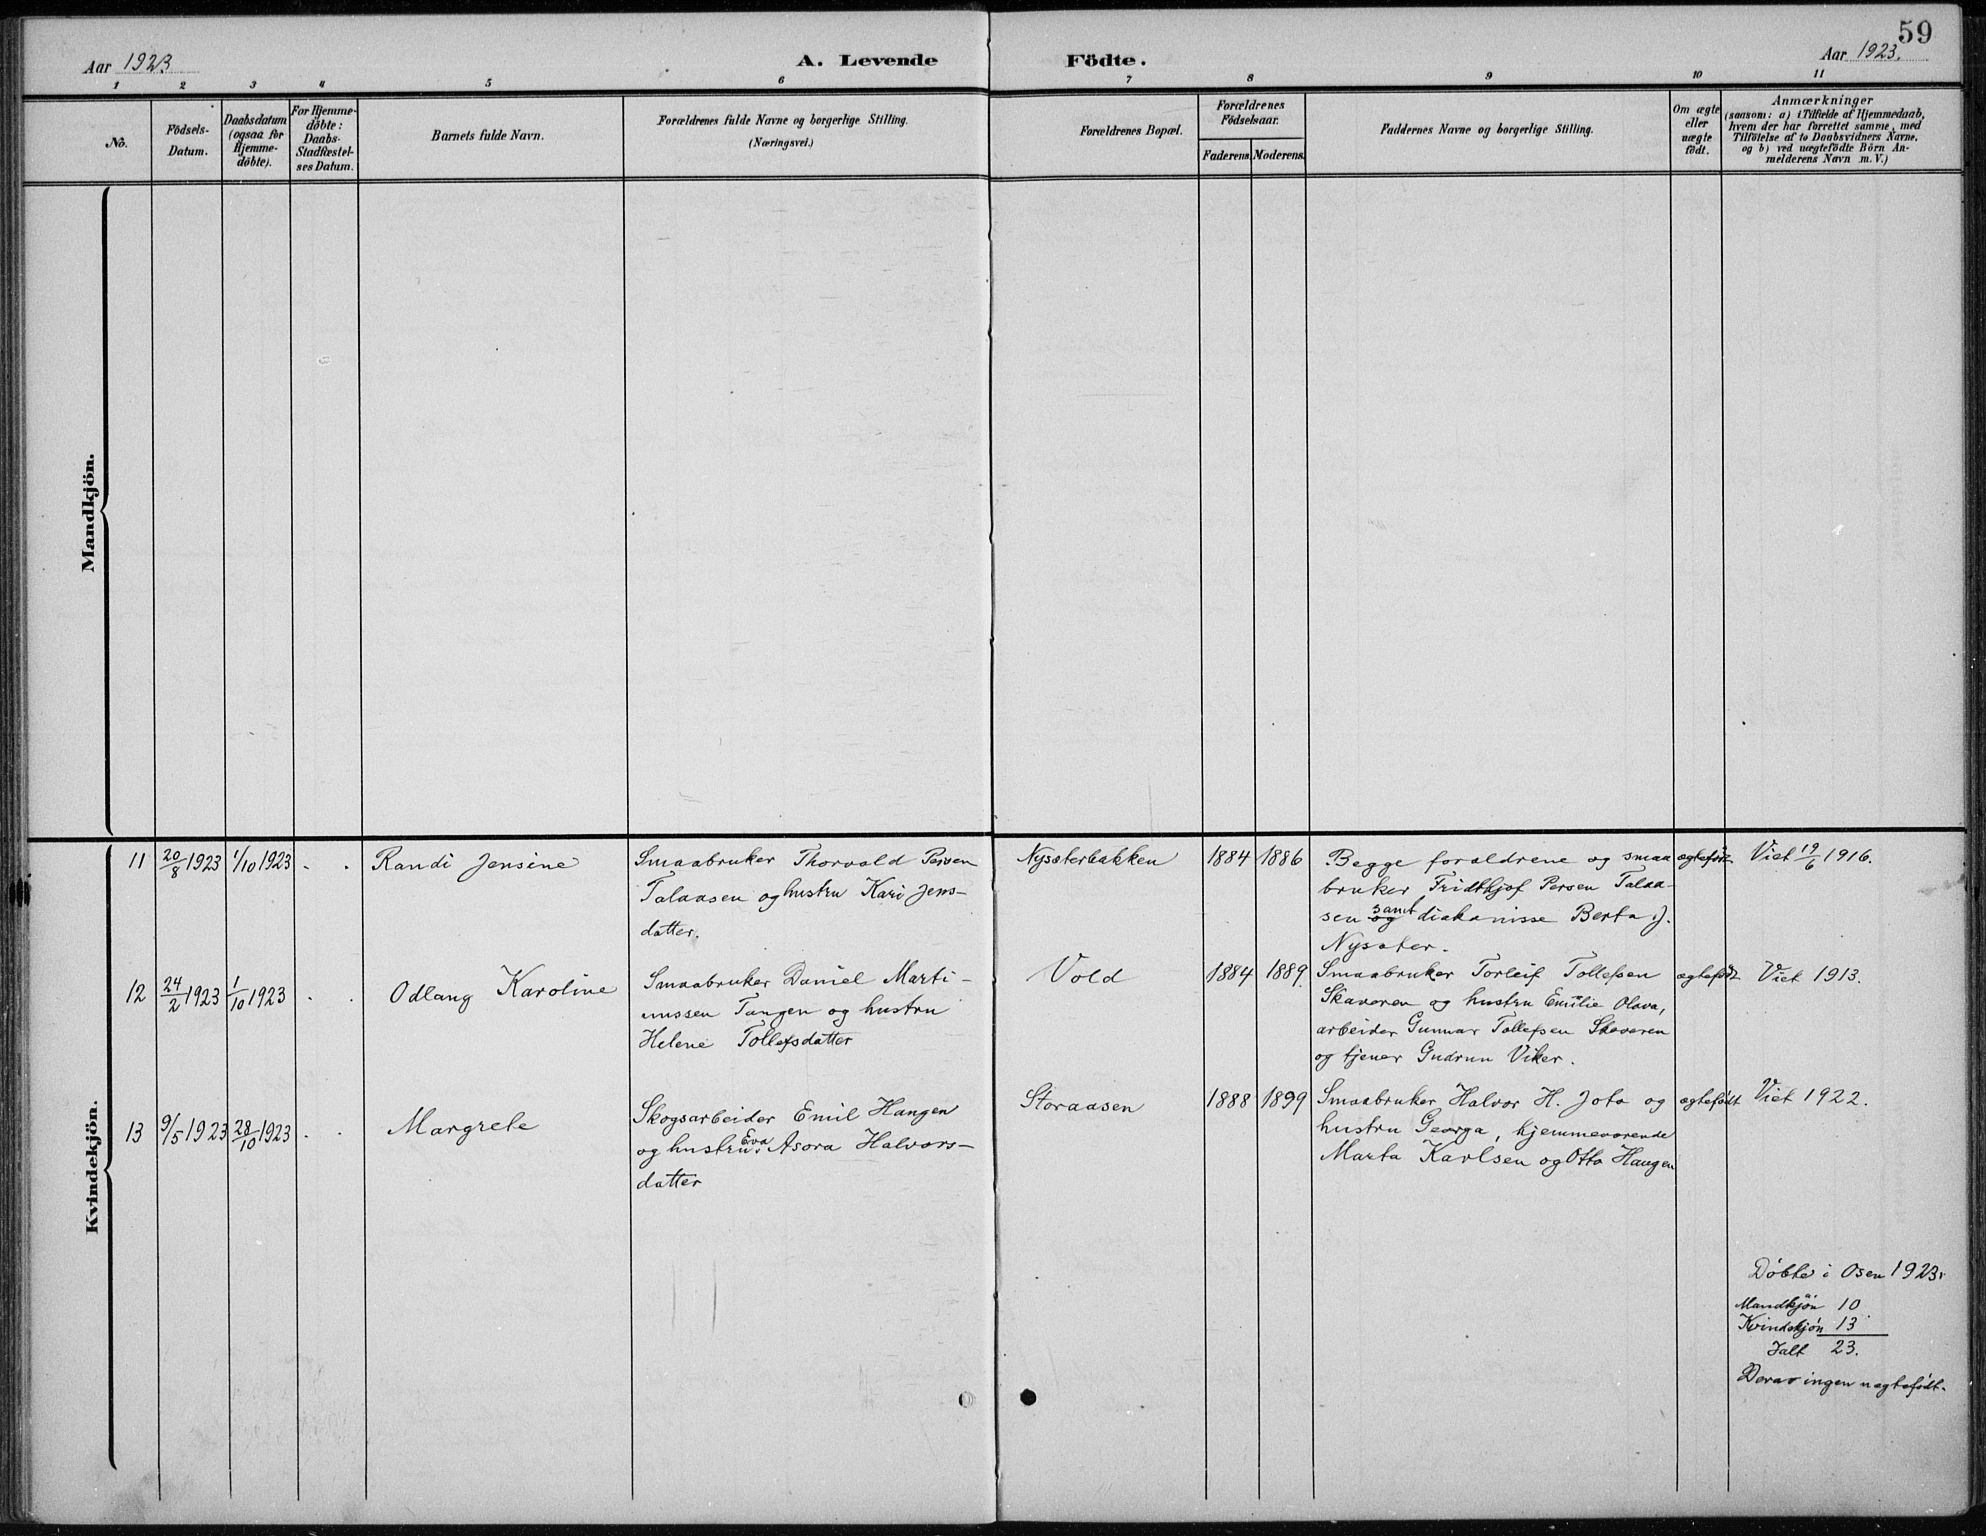 59
Aar 1923
A. Levende Födte.
Aar 1923.
1 2 3 4 5 6 7 8 9 10 11
No.
Födsels-Datum.
Daabsdatum (ogsaa for Hjemmedöbte).
For Hjemmedöbte: Daabs-Stadfestelses Datum.
Barnets fulde Navn.
Forældrenes fulde Navne og borgerlige Stilling.
(Næringsvei.)
Forældrenes Bopæl.
Forældrenes Födselsaar.
Faderens. Moderens.
Faddernes Navne og borgerlige Stilling.
Om ægte eller uægte födt.
Anmærkninger
(saasom: a) i Tilfælde af Hjemmedaab,
hvem der har forrettet samme, med
Tilföielse af to Daabsvidners Navne.
og b) ved uægtefödte Börn An-
melderens Navn m.V.)
Mandkjön.
Kvindekjön.
11 20/8 1923 1/10 1923 - -
Randi Jensine
Smaabruker Thorvald Persen
Talaasen og hustru Kari Jens-
datter.
Nysæterbakken
1884 1886
Begge forældrene og smaa
bruker Fridthjof Persen Talaa-
sen og samt diakonisse Berta J.
Nysæter.
ægtefödt
Viet 19/6 1916.
12 24/2 1923 1/10 1923 - -
Odlaug Karoline
Smaabruker Daniel Marti-
nussen Tangen og hustru
Helene Tollefsdatter
Vold
1884 1889.
Smaabruker Torleif Tollefsen
Skaveren og hustru Emilie Olava,
arbeider Gunnar Tollefsen Skaveren
og tjener Gudrun Viker.
ægtefödt
Viet 1913.
13 9/5 1923 28/10 1923 - -
Margrete
Skogsarbeider Emil Haugen
og hustru Eva Asora Halvors-
datter
Storaasen
1888 1899
Smaabruker Halvor H. Joto og
hustru Georga, hjemmeværende
Marta Karlsen og Otto Haugen
ægtefödt
Viet 1922.
Döbte i Osen 1923:
Mandkjön 10
Kvindekjön 13
Ialt 23.
Derav ingen uægtefödt.